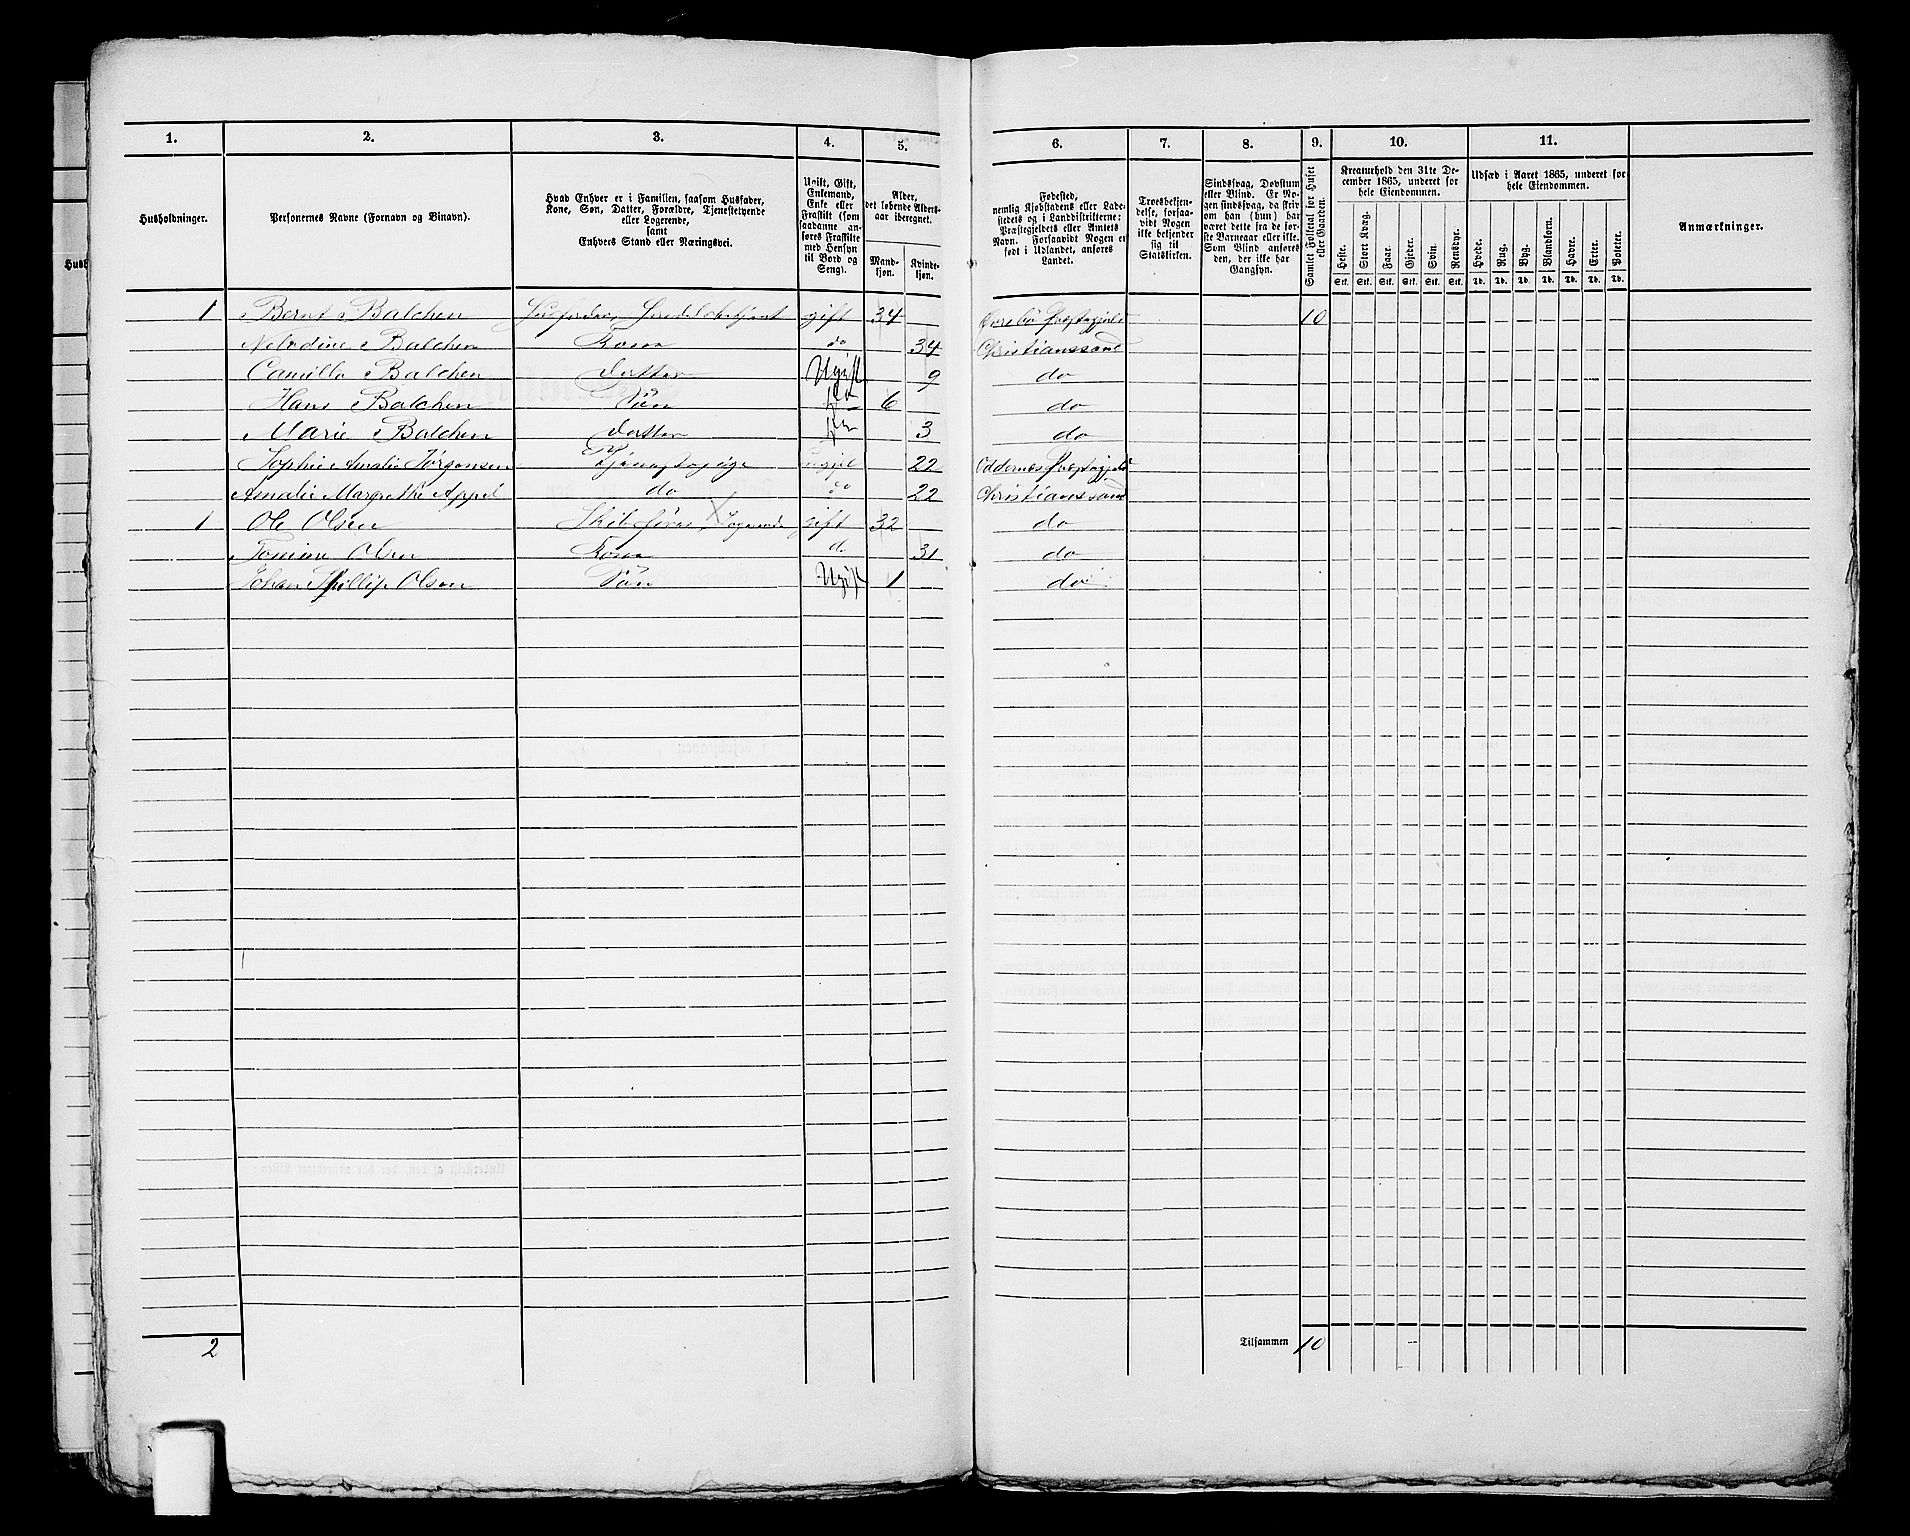 1. 2. 3. 4. 5. 6. 7. 8. 9. 10. 11.
Husholdninger.
Personernes Navne (Fornavn og Binavn).
Hvad Enhver er i Familien, saasom Husfader,
Kone, Søn, Datter, Forældre, Tjenestetyende
eller Logerende,
samt
Enhvers Stand eller Næringsvei.
Ugift, Gift,
Enkemand,
Enke eller
Fraskilt (som
saadanne an-
føres Fraskilte
med Hensyn
til Bord og
Seng).
Alder,
det løbende Alders-
aar iberegnet.
Mand-
kjøn.
Kvinde-
kjøn.
Fødested,
nemlig Kjøbstadens eller Lade-
stedets og i Landdistrikterne:
Præstegjeldets eller Amtets
Navn. Forsaavidt Nogen er
født i Udlandet, anføres
Landet.
Troesbekjen-
delse, forsaa-
vidt Nogen
ikke bekjender
sig til
Statskirken.
Sindssvag, Døvstum
eller Blind. Er No-
gen sindssvag, da skriv
om han (hun) har
været dette fra de før-
ste Barneaar eller ikke.
Som Blind anføres
den, der ikke har
Gangsyn.
Samlet Folketal for Huset
eller Gaarden.
Kreaturhold den 31te De-
cember 1865, underet for
hele Eiendommen.
Heste. Stort Kvæg. Faar. Gjeder. Svin. Rensdyr.
Stk. Stk. Stk. Stk. Stk. Stk.
Udsæd i Aaret 1865, underet for
hele Eiendommen.
Hvede. Rug. Byg. Blandkorn. Havre. Erter. Poteter.
Td. Td. Td. Td. Td. Td. Td.
Anmærkninger.
1 Bernt Balchen Husfader, Handelsbetjent gift 34 Øvrebø Præstegjeld 10
Balchen Kone do 34 Christianssand
Camilla Balchen Datter Ugift 9 do
Hans Balchen Søn do 6 do
Marie Balchen Datter do 3 do
Sophie Amalie Jørgensen Tjenestepige ugift 22 Oddernes Præstegjeld
Amalie Margrethe Appel do do 22 Christianssand
1 Ole Olsen Logerende gift 32 do
Tomine Olsen Kone do 31 do
Johan Phillip Olsen Søn Ugift 1 do
2 Tilsammen 10